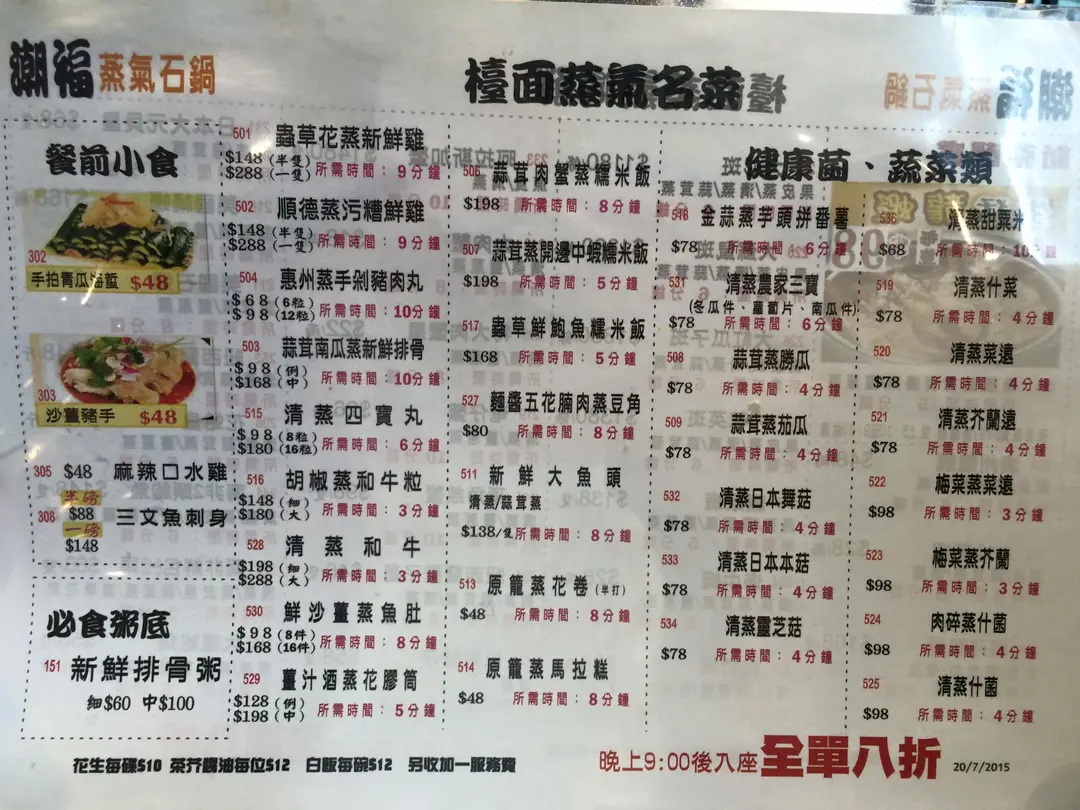 潮福 蒸氣石鍋
檯面蒸氣名菜
餐前小食
302
手拍青瓜海蜇 $48
303
沙薑豬手 $48
305 $48 麻辣口水雞
半磅
308 $88 三文魚刺身
一磅
$148
必食粥底
151 新鮮排骨粥
細$60 中$100
501 蟲草花蒸新鮮雞
$148 (半隻)
$288 (一隻) 所需時間：9分鐘
502 順德蒸污糟鮮雞
$148 (半隻)
$288 (一隻) 所需時間：9分鐘
504 惠州蒸手剁豬肉丸
$68 (6粒)
$98 (12粒) 所需時間：10分鐘
503 蒜茸南瓜蒸新鮮排骨
$98 (例)
$168 (中) 所需時間：10分鐘
515 清蒸四寶丸
$98 (8粒)
$180 (16粒) 所需時間：6分鐘
516 胡椒蒸和牛粒
$148 (細)
$180 (大) 所需時間：3分鐘
528 清蒸和牛
$198 (細)
$288 (大) 所需時間：3分鐘
530 鮮沙薑蒸魚肚
$98 (8件)
$168 (16件) 所需時間：8分鐘
529 薑汁酒蒸花膠筒
$128 (例)
$198 (中) 所需時間：5分鐘
506 蒜茸肉蟹蒸糯米飯
$198 所需時間：8分鐘
507 蒜茸蒸開邊中蝦糯米飯
$198 所需時間：5分鐘
517 蟲草鮮鮑魚糯米飯
$168 所需時間：5分鐘
527 麵醬五花腩肉蒸豆角
$80 所需時間：8分鐘
511 新鮮大魚頭
清蒸/蒜茸蒸
$138/隻 所需時間：8分鐘
513 原籠蒸花卷 (半打)
$48 所需時間：8分鐘
514 原籠蒸馬拉糕
$48 所需時間：8分鐘
健康菌、蔬菜類
518 金蒜蒸芋頭拼番薯
$78 所需時間：6分鐘
531 清蒸農家三寶
(冬瓜件、蘿蔔片、南瓜件)
$78 所需時間：6分鐘
508 蒜茸蒸勝瓜
$78 所需時間：4分鐘
509 蒜茸蒸茄瓜
$78 所需時間：4分鐘
532 清蒸日本舞菇
$78 所需時間：4分鐘
533 清蒸日本本菇
$78 所需時間：4分鐘
534 清蒸靈芝菇
$78 所需時間：4分鐘
536 清蒸甜粟米
$68 所需時間：10分鐘
519 清蒸什菜
$78 所需時間：4分鐘
520 清蒸菜遠
$78 所需時間：4分鐘
521 清蒸芥蘭遠
$78 所需時間：4分鐘
522 梅菜蒸菜遠
$98 所需時間：3分鐘
523 梅菜蒸芥蘭
$98 所需時間：3分鐘
524 肉碎蒸什菌
$98 所需時間：4分鐘
525 清蒸什菌
$98 所需時間：4分鐘
花生每碟$10 茶芥醬油每位$12 白飯每碗$12 另收加一服務費
晚上9:00後入座 全單八折 20/7/2015